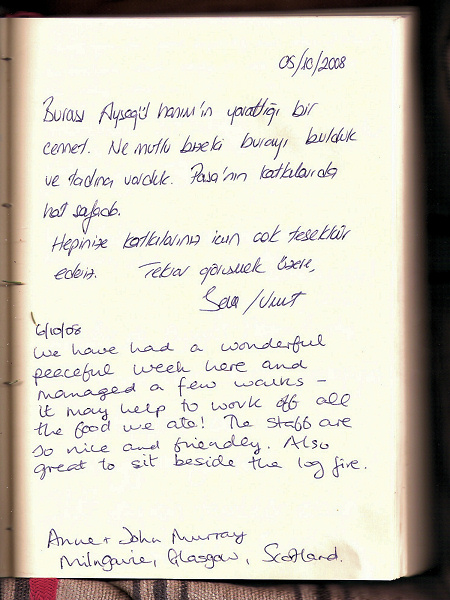 05/10/2008
Burası Ayşegül hanım'ın yarattığı bir
cennet. Ne mutlu bizeki burayı bulduk
ve tadına vardık. Paşa'nın katkılarıda
hat safada.
Hepinize katkılarınız için çok teşekkür
ederiz. Tekrar görüşmek üzere,
/Umut
6/10/08
We have had a wonderful
peaceful week here and
managed a few walks –
it may help to work off all
the food we ate! The staff are
so nice and friendly. Also
great to sit beside the log fire.
Anne + John Murray
Milngavie, Glasgow, Scotland.